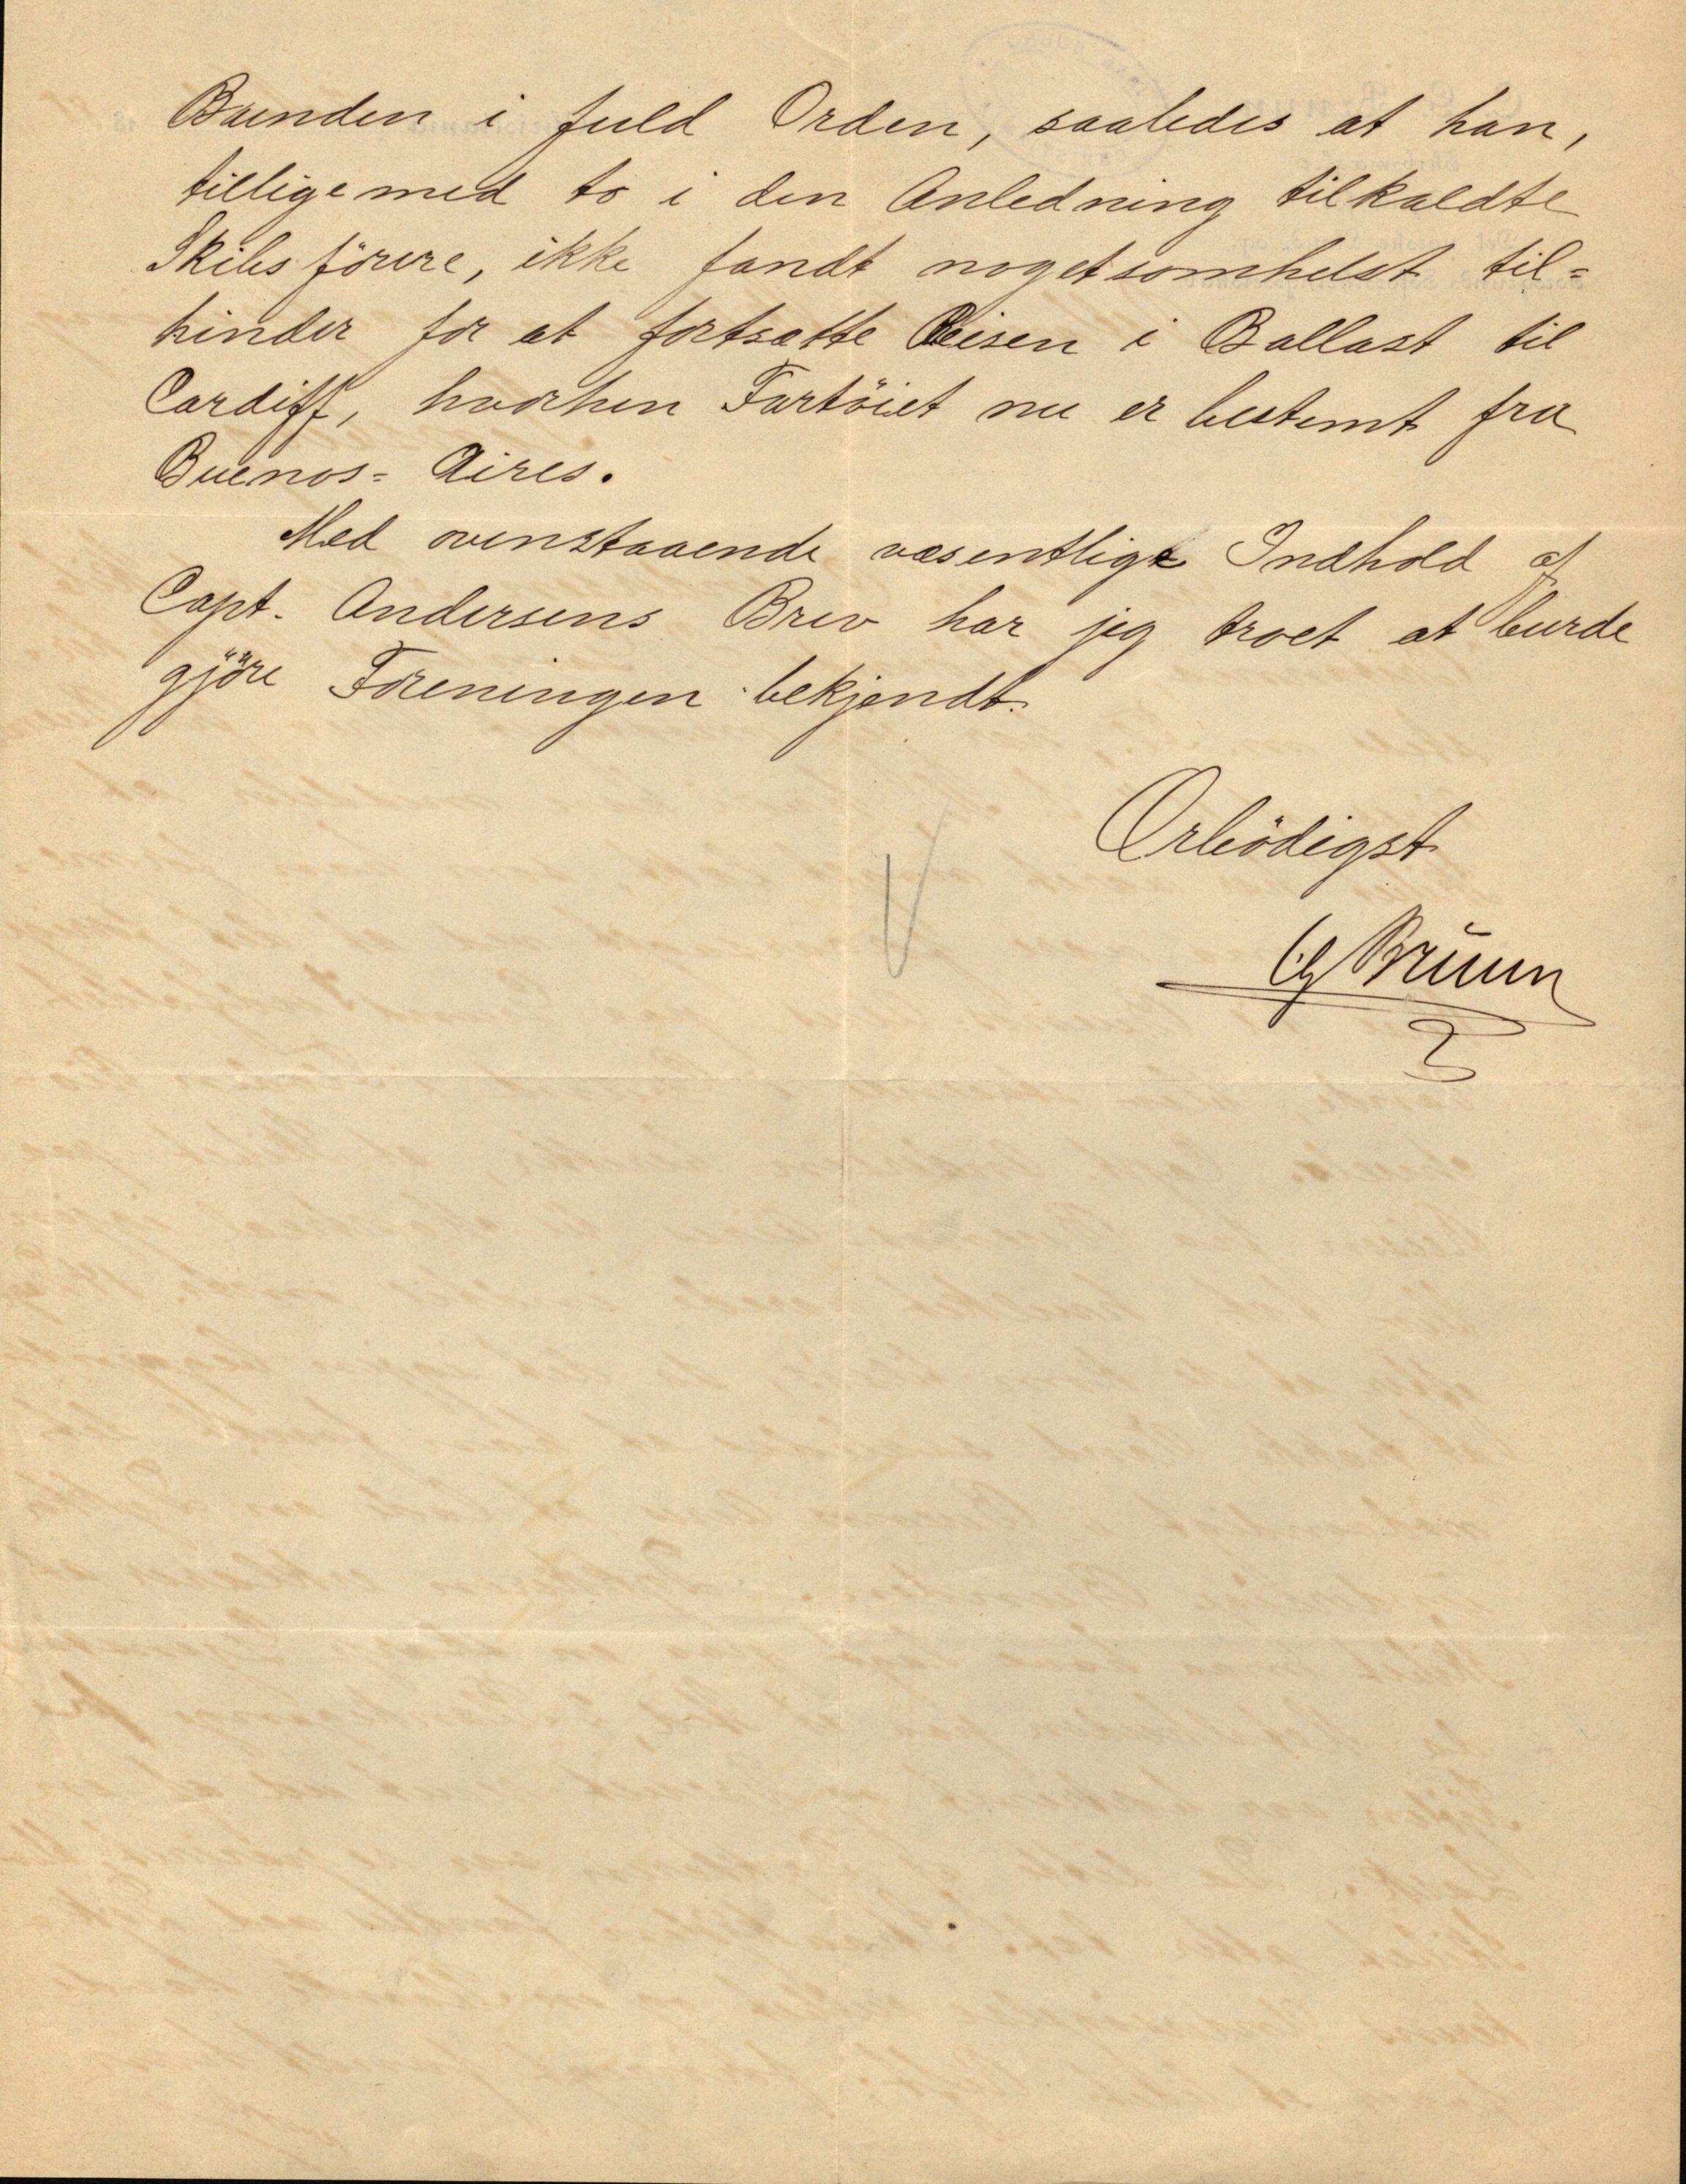 Bunden i fuld Orden, saaledes at han,
tilligemed to i den Anledning tilkaldte
Skibsförere, ikke fandt nogetsomhelst til=
hinder for at fortsætte Reisen i Ballast til
Cardiff, hvorhen Fartöiet nu er bestemt fra
Buenos=Aires.
Med ovenstaaende væsentlige Indhold af
Capt. Andersens Brev har jeg troet at burde
gjöre Foreningen bekjendt.
Ærbödigst
Bruun